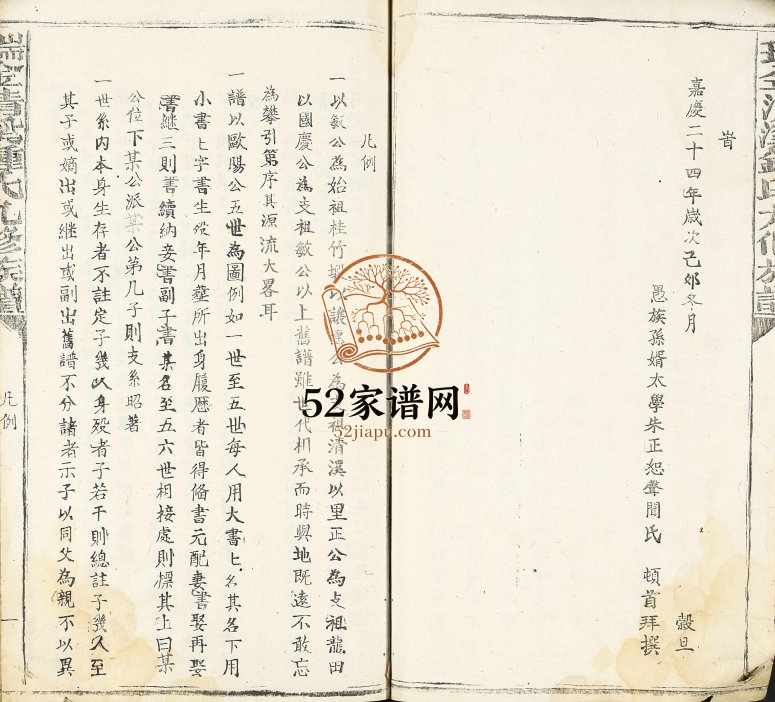 旹
嘉慶二十四年歲次己夘冬月
愚族孫婿太學朱正恕聲聞氏 頓首拜撰
穀旦
凡例
一以敏公為始祖桂竹以讓德公為祖清溪以里正公為支祖龍田
以國慶公為支祖敏公以上舊譜雖世代相承而時與地既遠不敢忘
為攀引第序其源流大畧耳
一譜以歐陽公五世為圖例如一世至五世每人用大書匕名其名下用
小書匕字書生歿年月塟所出身履歷者皆得俻書元配妻書娶再娶
書継三則書續納妾書副子書某名至五六世相接處則標其上曰某
公位下某公派某公第几子則支系昭著
一世系内本身生存者不註定子幾以身歿者子若干則總註子幾人至
其子或嫡出或継出或副出舊譜不分諸者示子以同父為親不以異
凡例
一
52家谱网
52jiapu.com